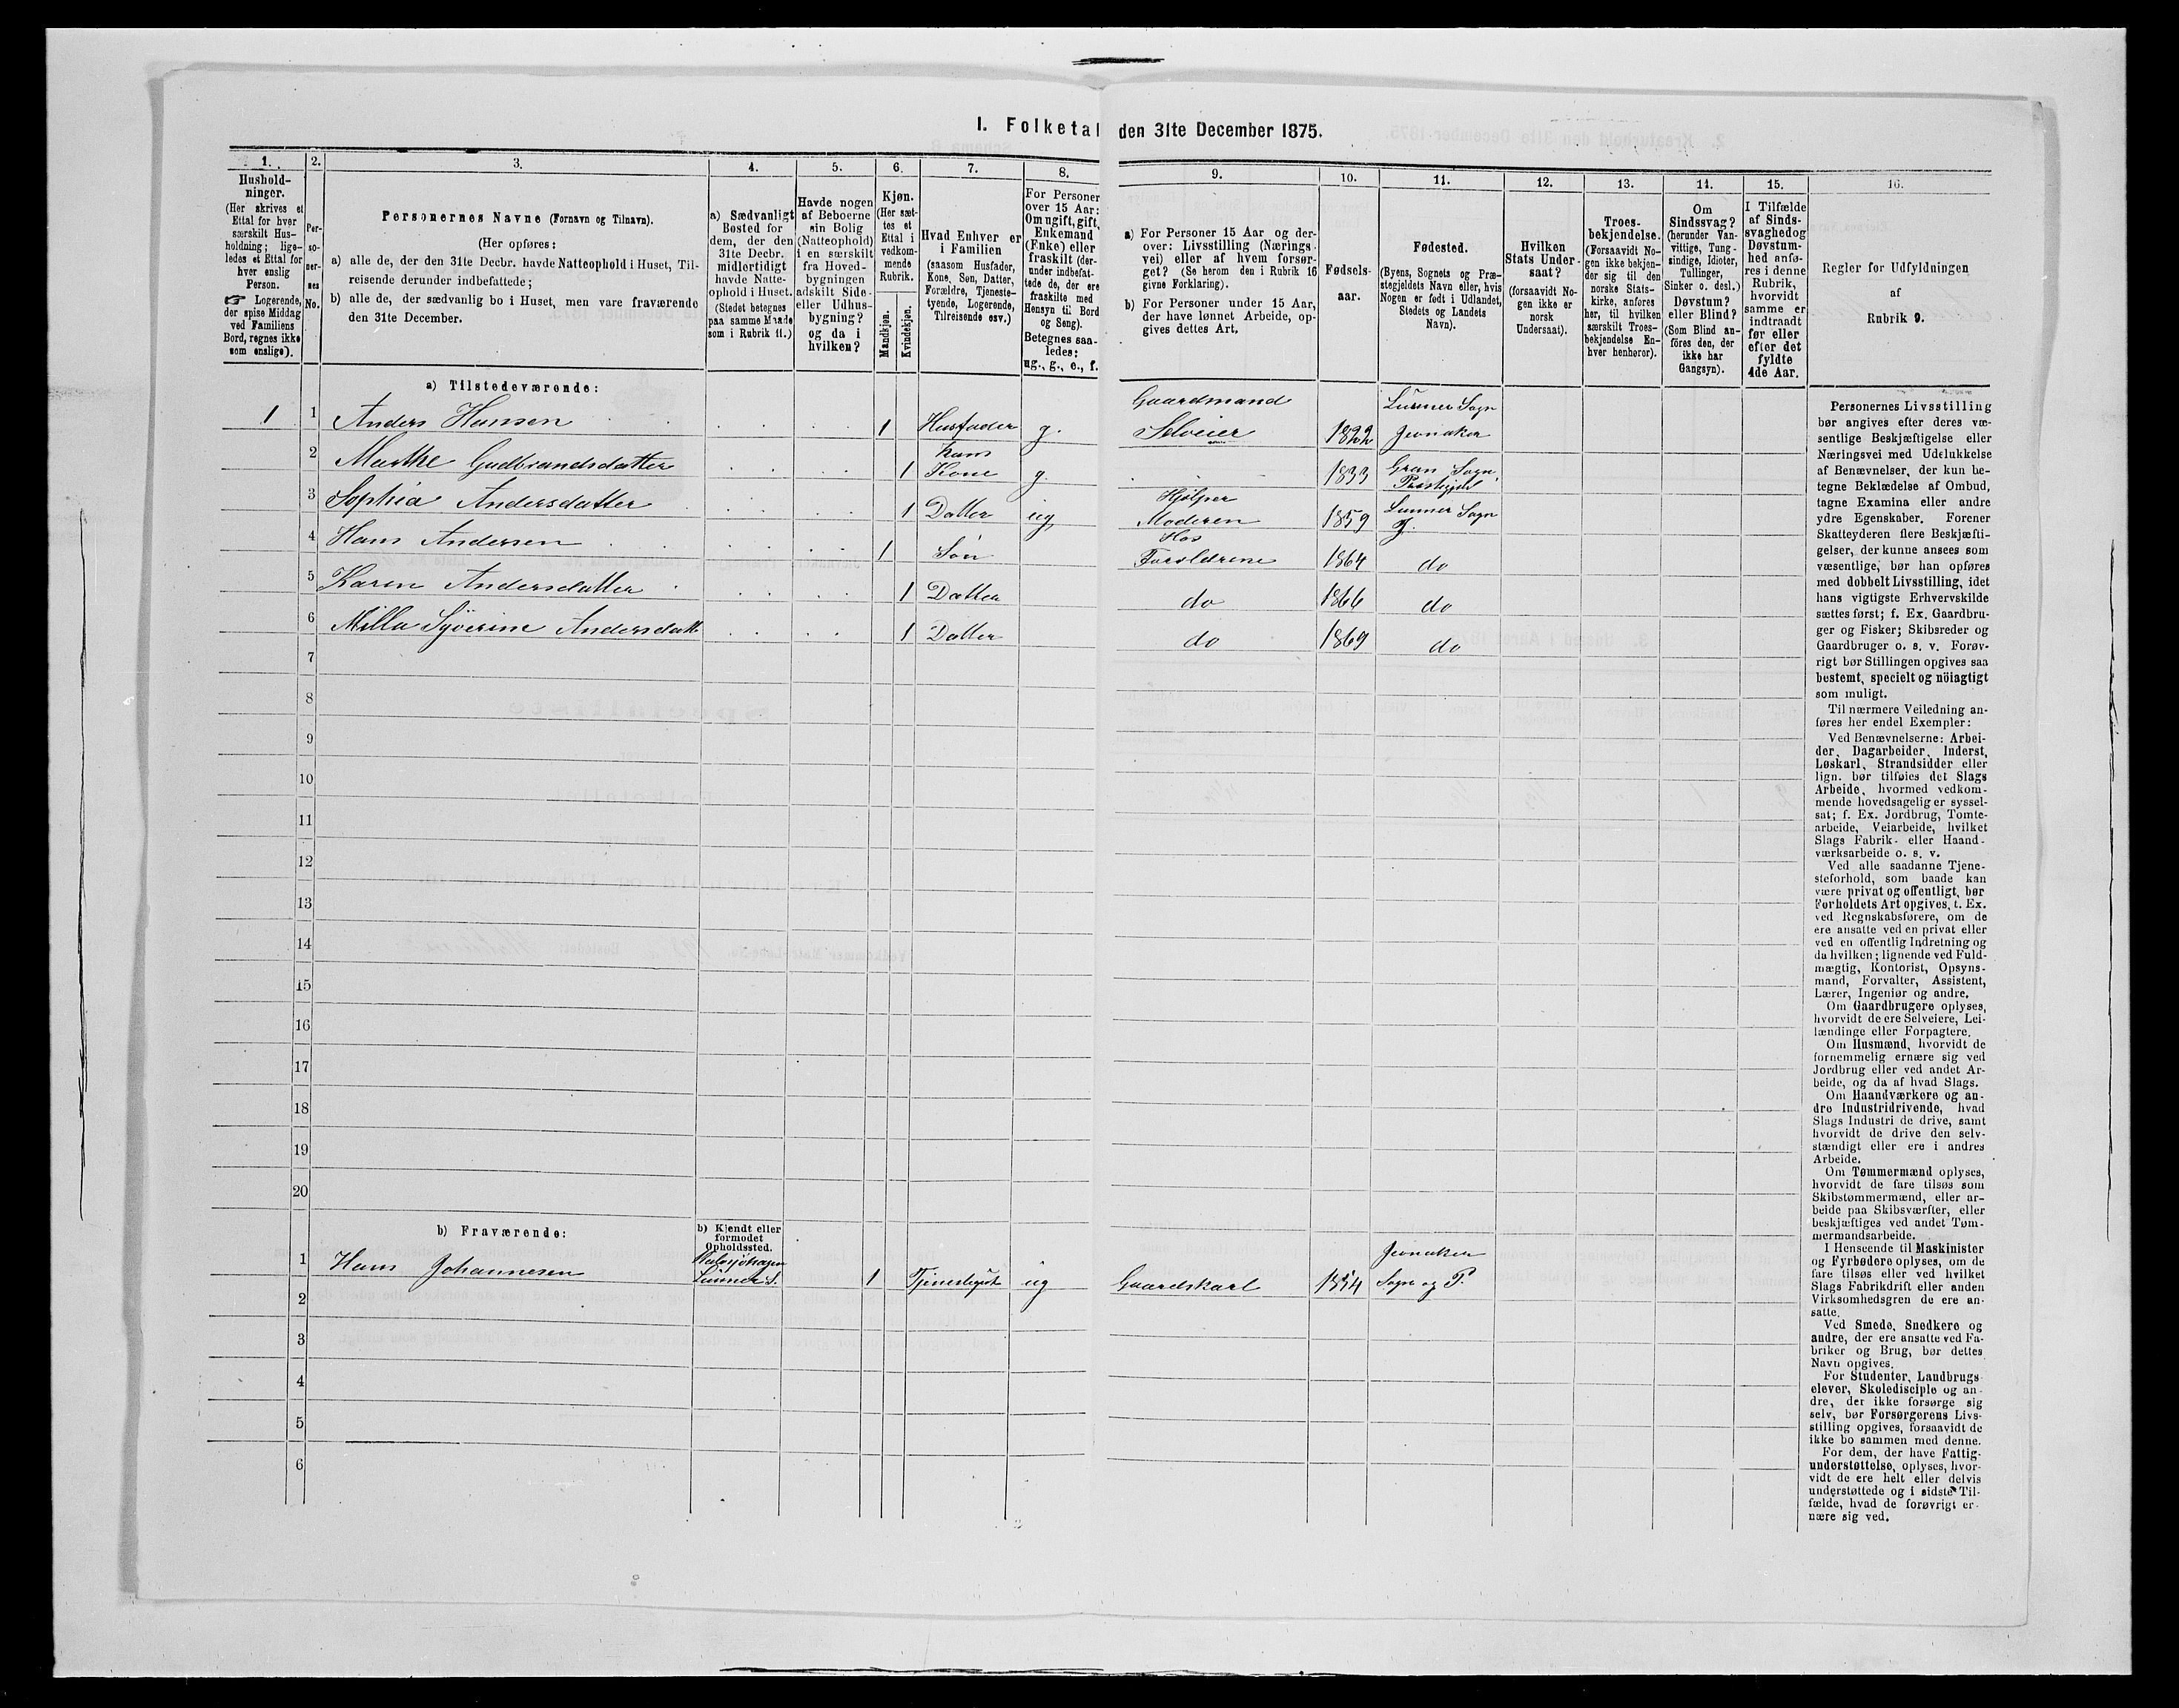 I. Folketal den 31te December 1875.
1. 2. 3. 4. 5. 6. 7. 8. 9. 10. 11. 12. 13. 14. 15. 16.
Hushold-
ninger.
(Her skrives et
Ettal for hver
særskilt Hus-
holdning; lige-
ledes et Ettal for
hver enslig
Person.
☞ Logerende,
der spise Middag
ved Familiens
Bord, regnes ikke
som enslige).
Per-
so-
ner-
nes
No.
Personernes Navne (Fornavn og Tilnavn).
(Her opføres:
a) alle de, der den 31te Decbr. havde Natteophold i Huset, Til-
reisende derunder indbefattede;
b) alle de, der sædvanlig bo i Huset, men vare fraværende
den 31te December.
a) Sædvanligt
Bosted for
dem, der den
31te Decbr.
midlertidigt
havde Natte-
ophold i Huset.
(Stedet betegnes
paa samme Maade
som i Rubrik 11.)
Havde nogen
af Beboerne
sin Bolig
(Natteophold)
i en særskilt
fra Hoved-
bygningen
adskilt Side-
eller Udhus-
bygning?
og da i
hvilken?
Kjøn.
(Her sæt-
tes et
Ettal i
vedkom-
mende
Rubrik.
Mandkjøn.
Kvindekjøn.
Hvad Enhver er
i Familien
(saasom Husfader,
Kone, Søn, Datter,
Forældre, Tjeneste-
tyende, Logerende,
Tilreisende osv.)
For Personer
over 15 Aar:
Om ugift, gift,
Enkemand
(Enke) eller
fraskilt (der-
under indbefat-
tede de, der ere
fraskilte med
Hensyn til Bord
og Seng).
Betegnes saa-
ledes:
ug., g., e., f.
a) For Personer 15 Aar og der-
over: Livsstilling (Nærings-
vei) eller af hvem forsør-
get? (Se herom den i Rubrik 16
givne Forklaring).
b) For Personer under 15 Aar,
der have lønnet Arbeide, op-
gives dettes Art.
Fødsels-
aar.
Fødested.
(Byens, Sognets og Præ-
stegjeldets Navn eller, hvis
Nogen er født i Udlandet,
Stedets og Landets
Navn).
Hvilken
Stats Under-
saat?
(forsaavidt No-
gen ikke er
norsk
Undersaat).
Troes-
bekjendelse.
(Forsaavidt No-
gen ikke bekjen-
der sig til den
norske Stats-
kirke, anføres
her, til hvilken
særskilt Troes-
bekjendelse En-
hver henhører).
Om
Sindssvag?
(herunder Van-
vittige, Tung-
sindige, Idioter,
Tullinger,
Sinker o. desl.)
Døvstum?
eller Blind?
(Som Blind an-
føres den, der
ikke har
Gangsyn).
I Tilfælde
af Sinds-
svaghed og
Døvstum-
hed anfø-
res i denne
Rubrik,
hvorvidt
samme er
indtraadt
før eller
efter det
fyldte
4de Aar.
Regler for Udfyldningen
af
Rubrik 9.
a) Tilstedeværende:
1 1 Anders Hansen 1 Husfader g. Gaardmand Selveier 1822 Lunner Sogn Jevnaker
2 Marthe Gudbrandsdatter 1 hans Kone g 1833 Gran Sogn Præstegjeld
3 Sophia Andersdatter 1 Datter ug Hjelper Moderen 1859 Lunner Sogn J.
4 Hans Andersen 1 Søn Hos Forældrene 1864 do
5 Karen Andersdatter 1 Datter do 1866 do
6 Milla Syverine Andersdatt 1 Datter do 1869 do
7
8
9
10
11
12
13
14
15
16
17
18
19
20
b) Fraværende:
b) Kjendt eller
formodet
Opholdssted.
1 Hans Johannesen Lunner S. 1 ug Gaardskarl 1854 Jevnaker Sogn og P.
2
3
4
5
6
Personernes Livsstilling
bør angives efter deres væ-
sentlige Beskjæftigelse eller
Næringsvei med Udelukkelse
af Benævnelser, der kun be-
tegne Beklædelse af Ombud,
tagne Examina eller andre
ydre Egenskaber. Forener
Skatteyderen flere Beskjæfti-
gelser, der kunne ansees som
væsentlige, bør han opføres
med dobbelt Livsstilling, idet
hans vigtigste Erhvervskilde
sættes først; f. Ex. Gaardbru-
ger og Fisker; Skibsreder og
Gaardbruger o. s. v. Forøv-
rigt bør Stillingen opgives saa
bestemt, specielt og nöiagtigt
som muligt.
Til nærmere Veiledning an-
føres her endel Exempler:
Ved Benævnelserne: Arbei-
der, Dagarbeider, Inderst,
Løskarl, Strandsidder eller
lign. bør tilføies det Slags
Arbeide, hvormed vedkom-
mende hovedsagelig er syssel-
sat; f. Ex. Jordbrug, Tomte-
arbeide, Veiarbeide, hvilket
Slags Fabrik- eller Haand-
værksarbeide o. s. v.
Ved alle saadanne Tjene-
steforhold, som baade kan
være privat og offentligt, bør
Forholdets Art opgives, t. Ex.
ved Regnskabsførere, om de
ere ansatte ved en privat eller
ved en offentlig Indretning og
da hvilken; lignende ved Fuld-
mægtig, Kontorist, Opsyns-
mand, Forvalter, Assistent,
Lærer, Ingeniør og andre.
Om Gaardbrugere oplyses,
hvorvidt de ere Selveiere, Lei-
lændinge eller Forpagtere.
Om Husmænd, hvorvidt de
fornemmelig ernære sig ved
Jordbrug eller ved andet Ar-
beide, og da af hvad Slags.
Om Haandværkere og an-
dre Industridrivende, hvad
Slags Industri de drive, samt
hvorvidt de drive den selv-
stændigt eller ere i andres
Arbeide.
Om Tømmermænd oplyses,
hvorvidt de fare tilsøs som
Skibstømmermænd, eller ar-
beide paa Skibsværfter, eller
beskjæftiges ved andet Tøm-
mermandsarbeide.
I Henseende til Maskinister
og Fyrbødere oplyses, om de
fare tilsøs eller ved hvilket
Slags Fabrikdrift eller anden
Virksomhedsgren de ere an-
satte.
Ved Smede, Snedkere og
andre, der ere ansatte ved Fa-
briker og Brug, bør dettes
Navn opgives.
For Studenter, Landbrugs-
elever, Skoledisciple og an-
dre, der ikke forsørge sig
selv, bør Forsørgerens Livs-
stilling opgives, forsaavidt de
ikke bo sammen med denne.
For dem, der have Fattig-
understøttelse, oplyses, hvor-
vidt de ere helt eller delvis
understøttede og i sidste Til-
fælde, hvad de forøvrigt er-
nære sig ved.